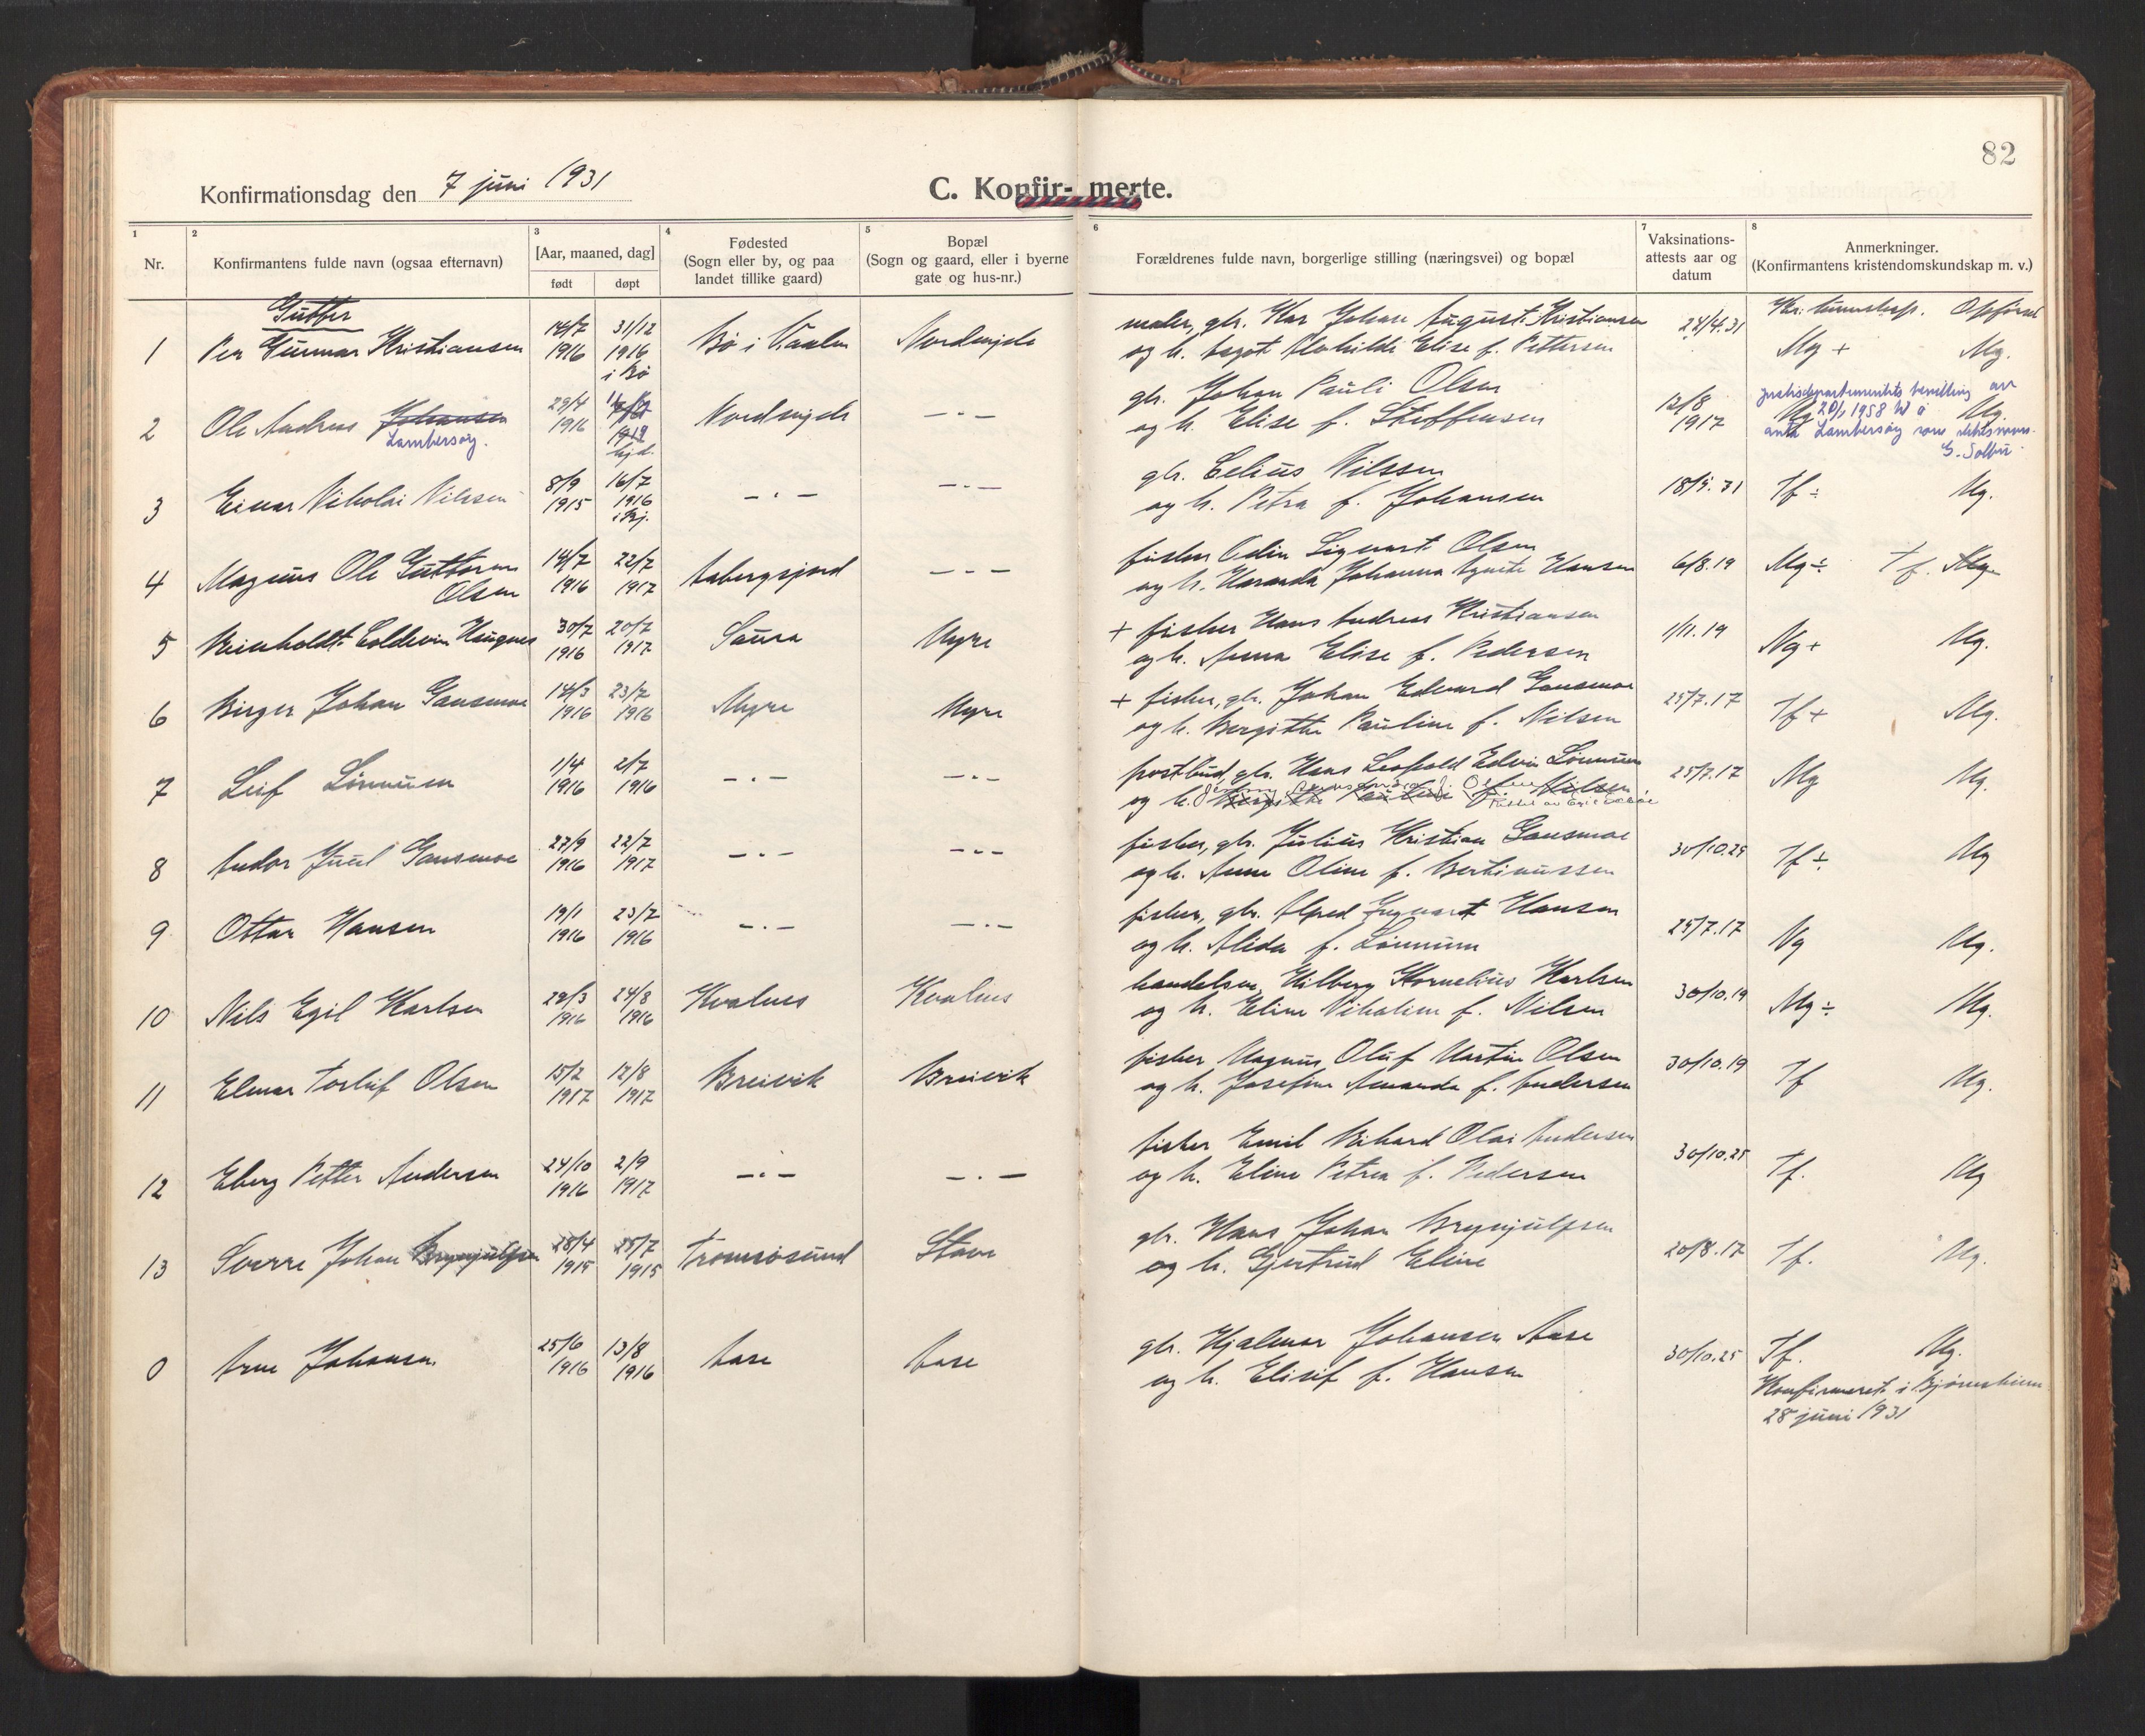 82
Konfirmationsdag den 7 juni 1931
C. Konfir- merte.
1 2 3 4 5 6 7 8
Nr.
Konfirmantens fulde navn (ogsaa efternavn)
[Aar, maaned, dag]
født døpt
Fødested
(Sogn eller by, og paa
landet tillike gaard)
Bopæl
(Sogn og gaard, eller i byerne
gate og hus-nr.)
Forældrenes fulde navn, borgerlige stilling (næringsvei) og bopæl
Vaksinations-
attests aar og
datum
Anmerkninger.
(Konfirmantens kristendomskundskap m. v.)
Gutter
Kr. kunnskap. Oppførsel
1 Per Gunnar Kristiansen 14/7 1916 31/12 1916 i Bø Bø i V.aalen Nordmjele
maler, gbr. Kar Johan August Kristiansen
og h. Aagot Elise f. Pettersen
24/4.31 Mg + Mg.
2 Ole Andreas Johansen 29/4 1916 1919 hjd. Nordmjele -"-
Lambersøy.
gbr. Johan Pauli Olsen
og h. Elise f. Steffensen
12/8 1917 Mg.
justisdepartementets bevilling av
20/1 1958 til å
anta Lambersøy som slektsnavn.
G. Solbu.
3 Einar Nikolai Nilssen 8/9 1915 16/7 1916 -"- -"-
gbr. Celius Nilssen
og h. Petra f. Johansen
18/5.31 Tf ÷ Mg.
4 Magnus Ole Guttorm
Olsen 14/7 1916 22/7 1917 Aabergsjord -"-
fisker Odin Sigvart Olsen
og h. Haranda Johanna Agnete Hansen
6/8.19 Mg ÷ Tf. Mg
5 Reinholdt Coldevin Haugnes 30/7 1916 20/7 1917 Saura Myre
+ fisker Hans Andreas Kristiansen
og h. Anna Elise f. Pedersen
1/11.19 Ng + Mg.
6 Birger Johan Gausmoe 14/3 1916 23/7 1916 Myre Myre
+ fisker, gbr. Johan Edvard Gausmoe
og h. Bergithe Pauline f. Nilsen
25/7.17 Tf + Mg.
7 Leif Lönnum 1/4 1916 2/7 1916 -"- -"-
postbud, gbr. Hans Leopold Edvin Lönnum
og h. Bergithe Pauline f. Nilsen
25/7.17 Mg Mg.
8 Andor Juul Gausmoe 27/9 1916 22/7 1917 -"- -"-
fisker, gbr. Julius Kristian Gausmoe
og h. Anne Oline f. Bertinussen
30/10.29 Tf ÷ Mg
9 Ottar Hansen 19/1 1916 23/7 1916 -"- -"-
fisker, gbr. Alfred Ingvart Hansen
og h. Alida f. Lönnum
25/7.17 Ng Mg.
10 Nils Egil Karlsen 29/3 1916 24/8 1916 Kvalnes Kvalnes
handelsm. Hilberg Kornelius Karlsen
og h. Eline Nikoline f. Nilsen
30/10.19 Mg ÷ Mg.
11 Elmar Torleif Olsen 15/2 1917 12/8 1917 Breivik Breivik
fisker Magnus Oluf Martin Olsen
og h. Josefine Amanda f. Andersen
30/10.19 Tf Mg.
12 Eberg Petter Andersen 24/10 1916 2/9 1917 -"- -"-
fisker Emil Rikard Olai Andersen
og h. Eline Petrea f. Pedersen
30/10.25 Tf. Mg
13 Sverre Johan Brynjulfsen 28/4 1915 25/7 1915 Tromsösund Stave
gbr. Hans Johan Brynjulfsen
og h. Gjertrud Eline
20/8.17 Tf. Mg.
0 Arne Johansen. 25/6 1916 13/8 1916 Aase Aase
gbr. Hjalmar Johansen Aase
og h. Elisif f. Hansen
30/10.25 Tf. Mg.
Konfirmeret i Bjørnskinn
28 juni 1931